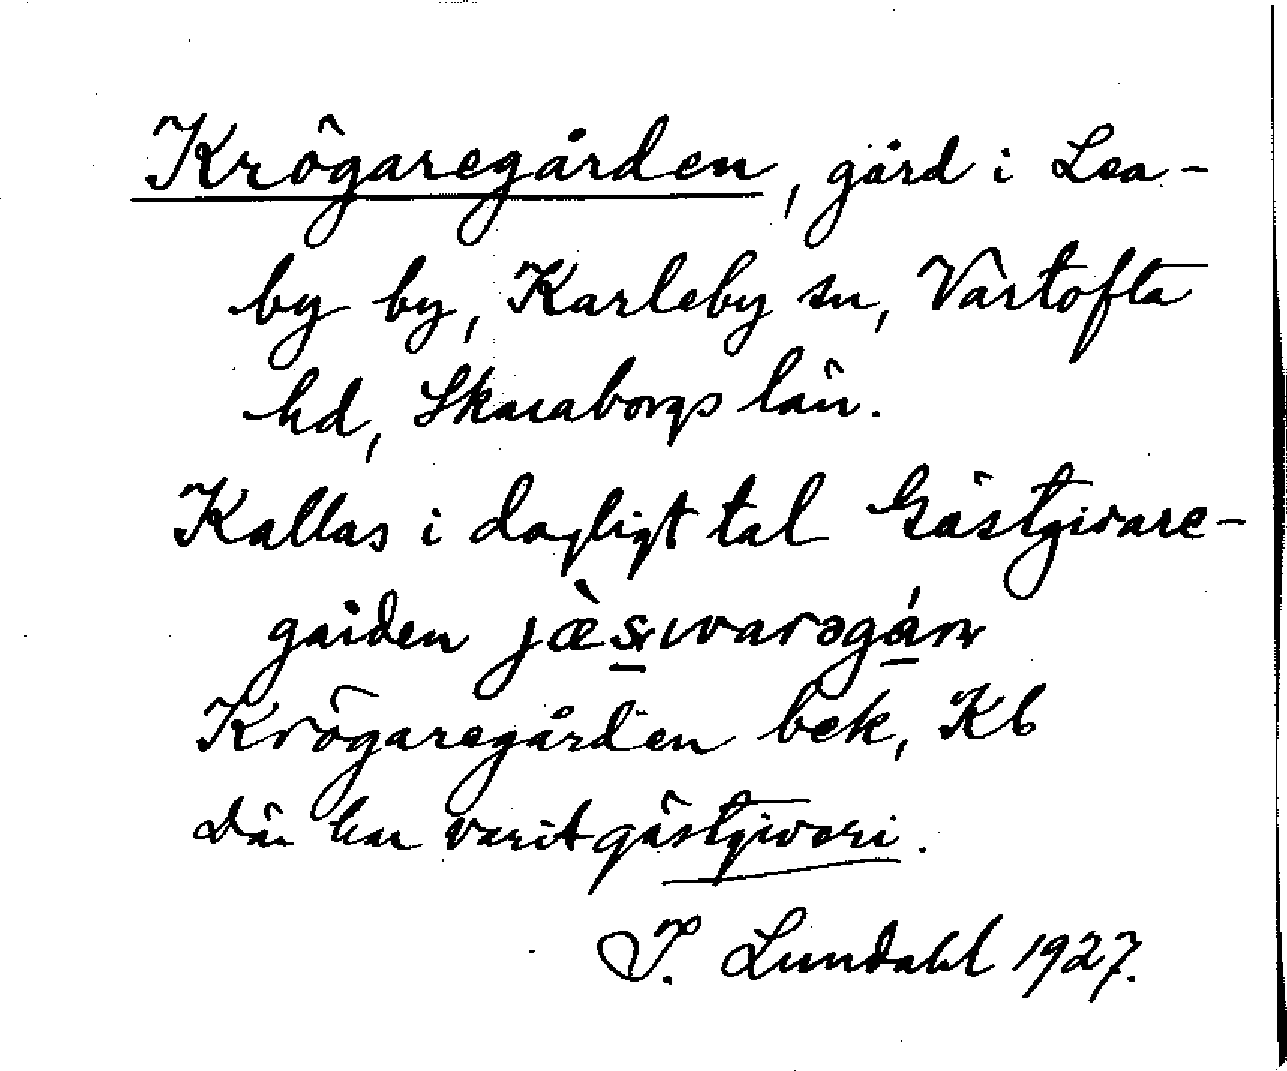 Krögaregården, gård i Lea-
by by, Karleby sn, Vartofta
hd, Skaraborgs län.
Kallas i dagligt tal Gästgivare-
gården
Krögaregården bek, Kb
Där har varit gästgiveri.
I. Lundahl 1927.